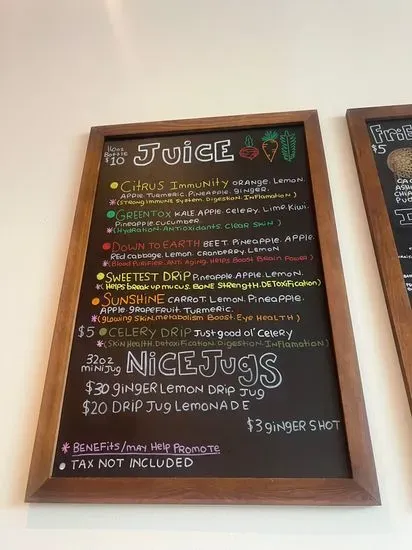 16oz
Bottle
$10
JUICE
Citrus Immunity ORANGE. Lemon.
Apple. Turmeric. Pineapple. ginger.
*(Strong Immune System. Digestion. Inflamation)
GREENTOX KALE Apple. Celery. Lime. Kiwi.
Pineapple. cucumber.
*(Hydration. Antioxidants. Clear Skin)
DOWN TO EARTH BEET. Pineapple. Apple.
Red cabbage. Lemon. Cranberry. Lemon
*(Blood Purifier. Anti Aging. Helps Boost Brain Power)
SWEETEST DRIP Pineapple. Apple. Lemon.
*(Helps break up mucus. BONE Strength. DETOXification)
SUNSHINE CARROT. Lemon. Pineapple.
Apple. grapefruit. Turmeric.
*(Glowing Skin. metabolism Boost. Eye HEALTH)
$5 CELERY DRIP Just good ol' Celery
*(Skin Health. Detoxification. Digestion. Inflamation)
32oz
miniJug
NiCEJUgS
$30 ginger Lemon Drip Jug
$20 DRIP Jug LEMONADE
$3 ginger SHOT
* BENEFITS/may Help PROMOTE
• TAX NOT INCLUDED
$5